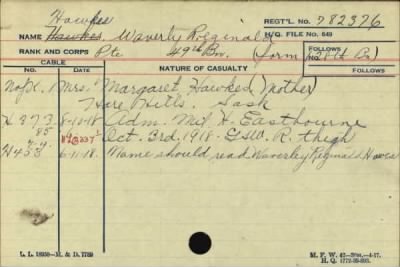 Hawkes
NAME Hawkes, Waverly Reginald REGT'L. NO. 782376
H.Q. FILE NO. 649
RANK AND CORPS Pte 49th Bn. (form 128th Bn) FOLLOWS
NO.
CABLE
NO. DATE NATURE OF CASUALTY FOLLOWS
Nofk. Mrs. Margaret Hawkes (Mother)
Hills. Sask
H 373 8-10-18 Adm. Mil. H. Eastbourne
85 Oct. 3rd. 1918. GSW. R. thigh
H453 6-11-18 Name should read Waverley Reginald Hawes
L. L. 18950—M. & D. 7789
M. F. W. 42
H. Q. 1772-39-893.